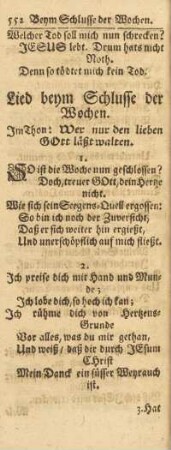 552 Beym Schlusse der Wochen.
Welcher Tod soll mich nun schrecken?
JESUS lebt. Drum hats nicht
Noth.
Denn so tödtet mich kein Tod.
Lied beym Schlusse der
Wochen.
Im Thon: Wer nur den lieben
GOtt läßt walten.
1.
SO ist die Woche nun geschlossen?
Doch, treuer GOtt, dein Hertze
nicht.
Wie sich sein Seegens-Quell ergossen:
So bin ich noch der Zuversicht,
Daß er sich weiter hin ergießt,
Und unerschöpflich auf mich fließt.
2.
Ich preise dich mit Hand und Mun-
de;
Ich lobe dich, so hoch ich kan;
Ich rühme dich von Hertzens-
Grunde
Vor alles, was du mir gethan,
Und weiß, daß dir durch JEsum
CHrist
Mein Danck ein süsser Weyrauch
ist.
3. Hat